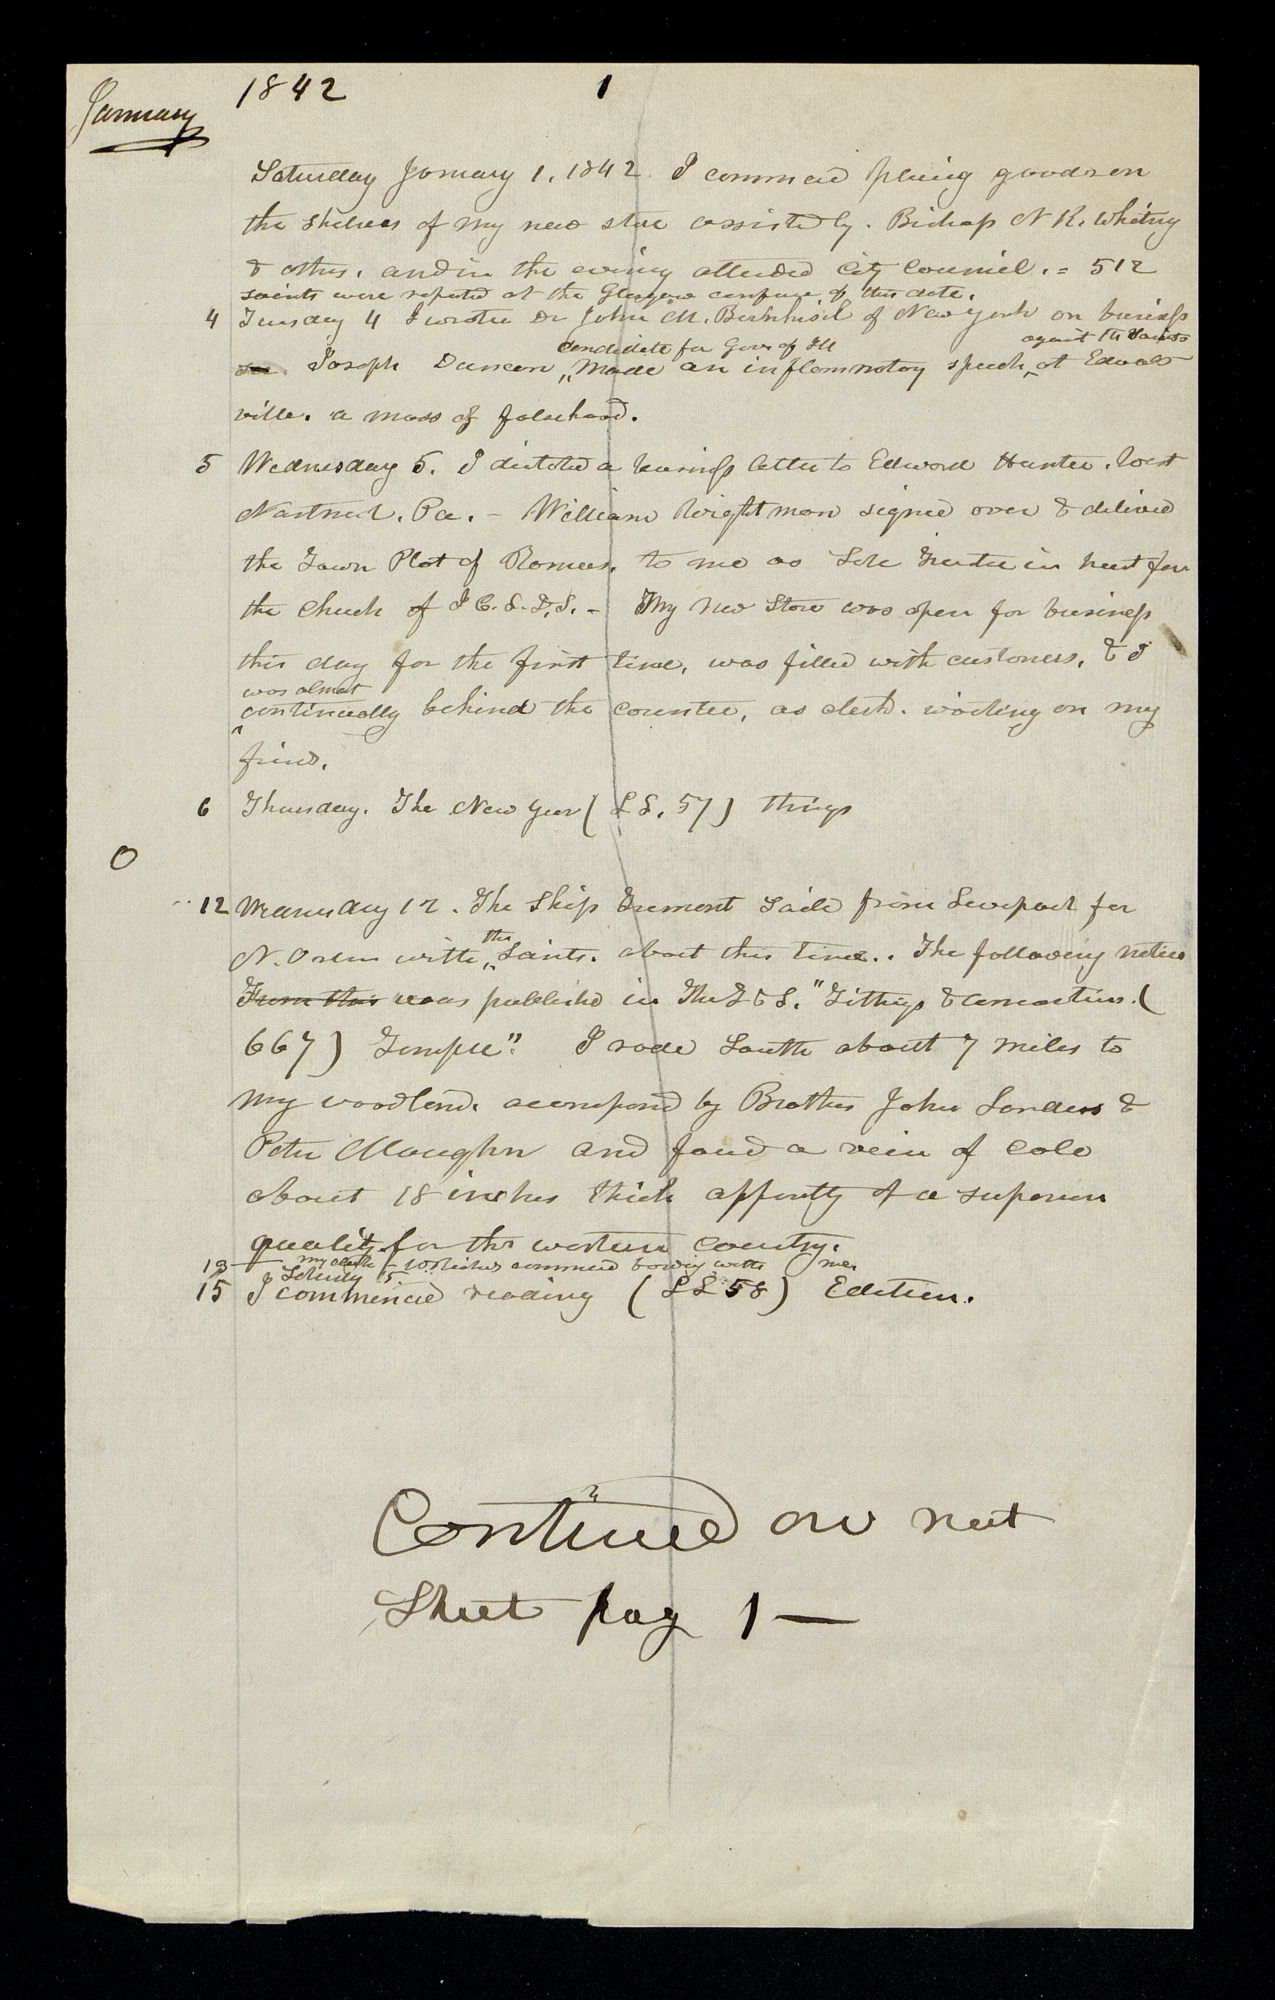 1842 1
January
Saturday January 1, 1842. I commncd placing goods on
the shelves of my new store assisted by. Bishop N K. Whitney
& others. and in the evening attended City Council. = 512
saints were reported at the Glasgow confence of this date.
4 Tuesday 4 I wrote Dr John M. Bernhisel of New York on business
candidate for Govr of Ill against the Saints
Joseph Duncan, Made an inflammatory speech, at Edwards
ville. a mass of falsehood.
5 Wednesday 5. I dictated a business letter to Edward Hunter. West
Nantmeal. Pa. - William Wightman signed over & delived
the Town Plat of Ramus. to me as Sole Trustee in trust for
the Church of J C. L. D. S. - My new Store was open for business
this day for the first time, was filled with customers, & I
was almost
continually behind the counter, as clerk. waiting on my
frinds.
6 Thursday. The New Year ( L S. 57) things
O
12 Wednesday 12. The Ship Tremont Saild from Liverpool for
the
N. Orlens with Saints. about this time. . The following notice
From this was published in The T & S. "Tithings & consecrations. (
667) Temple". I rode South about 7 miles to
my woodland. accompand by Brothers John Sanders &
Peter Maughn and found a vein of cole
about 18 inches thick apprntly of a superior
quality for the western country.
13 my clerk W Richards commencd boarding with me.
Saturday 15
15 I commenced reading (L L 58) Edition.
Continued on next
Sheet pag 1 —